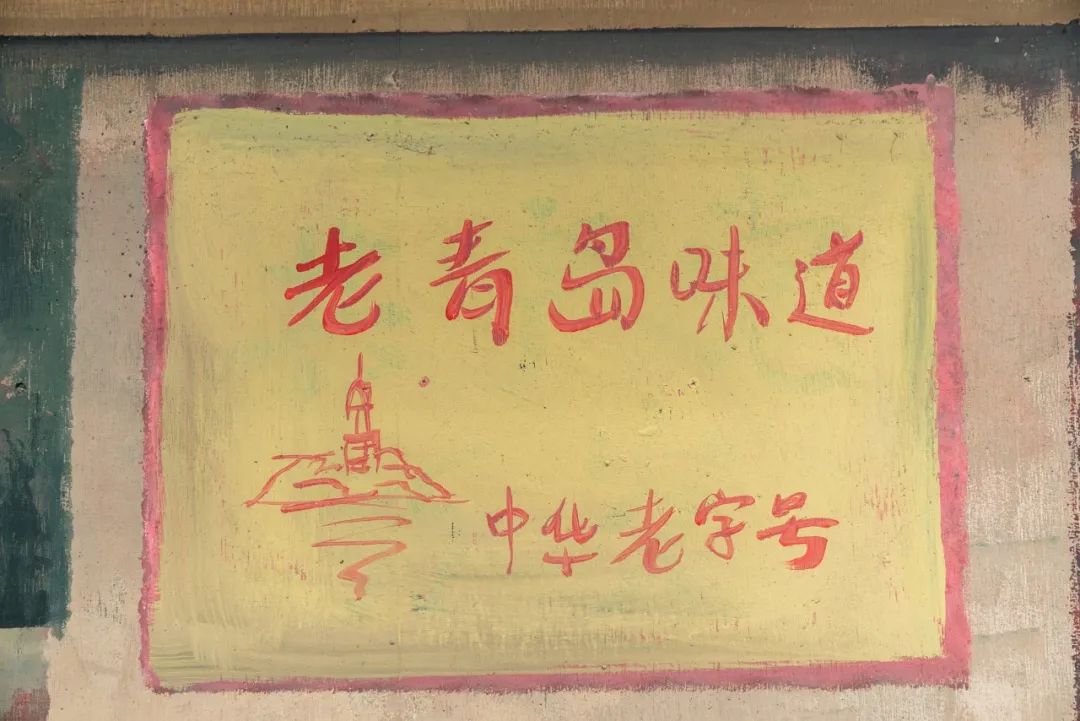 老青岛味道
中华老字号